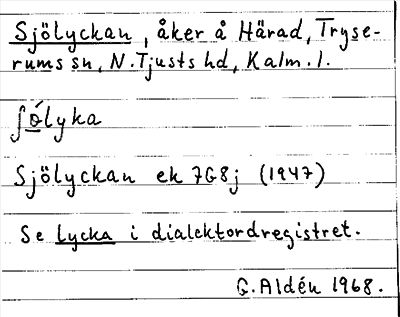 Sjölyckan, åker å Härad, Tryse-
rums sn, N. Tjusts hd, Kalm. l.
ʃö́lyka
Sjölyckan ek 7G8j (1947)
Se lycka i dialektordregistret.
G. Aldén 1968.